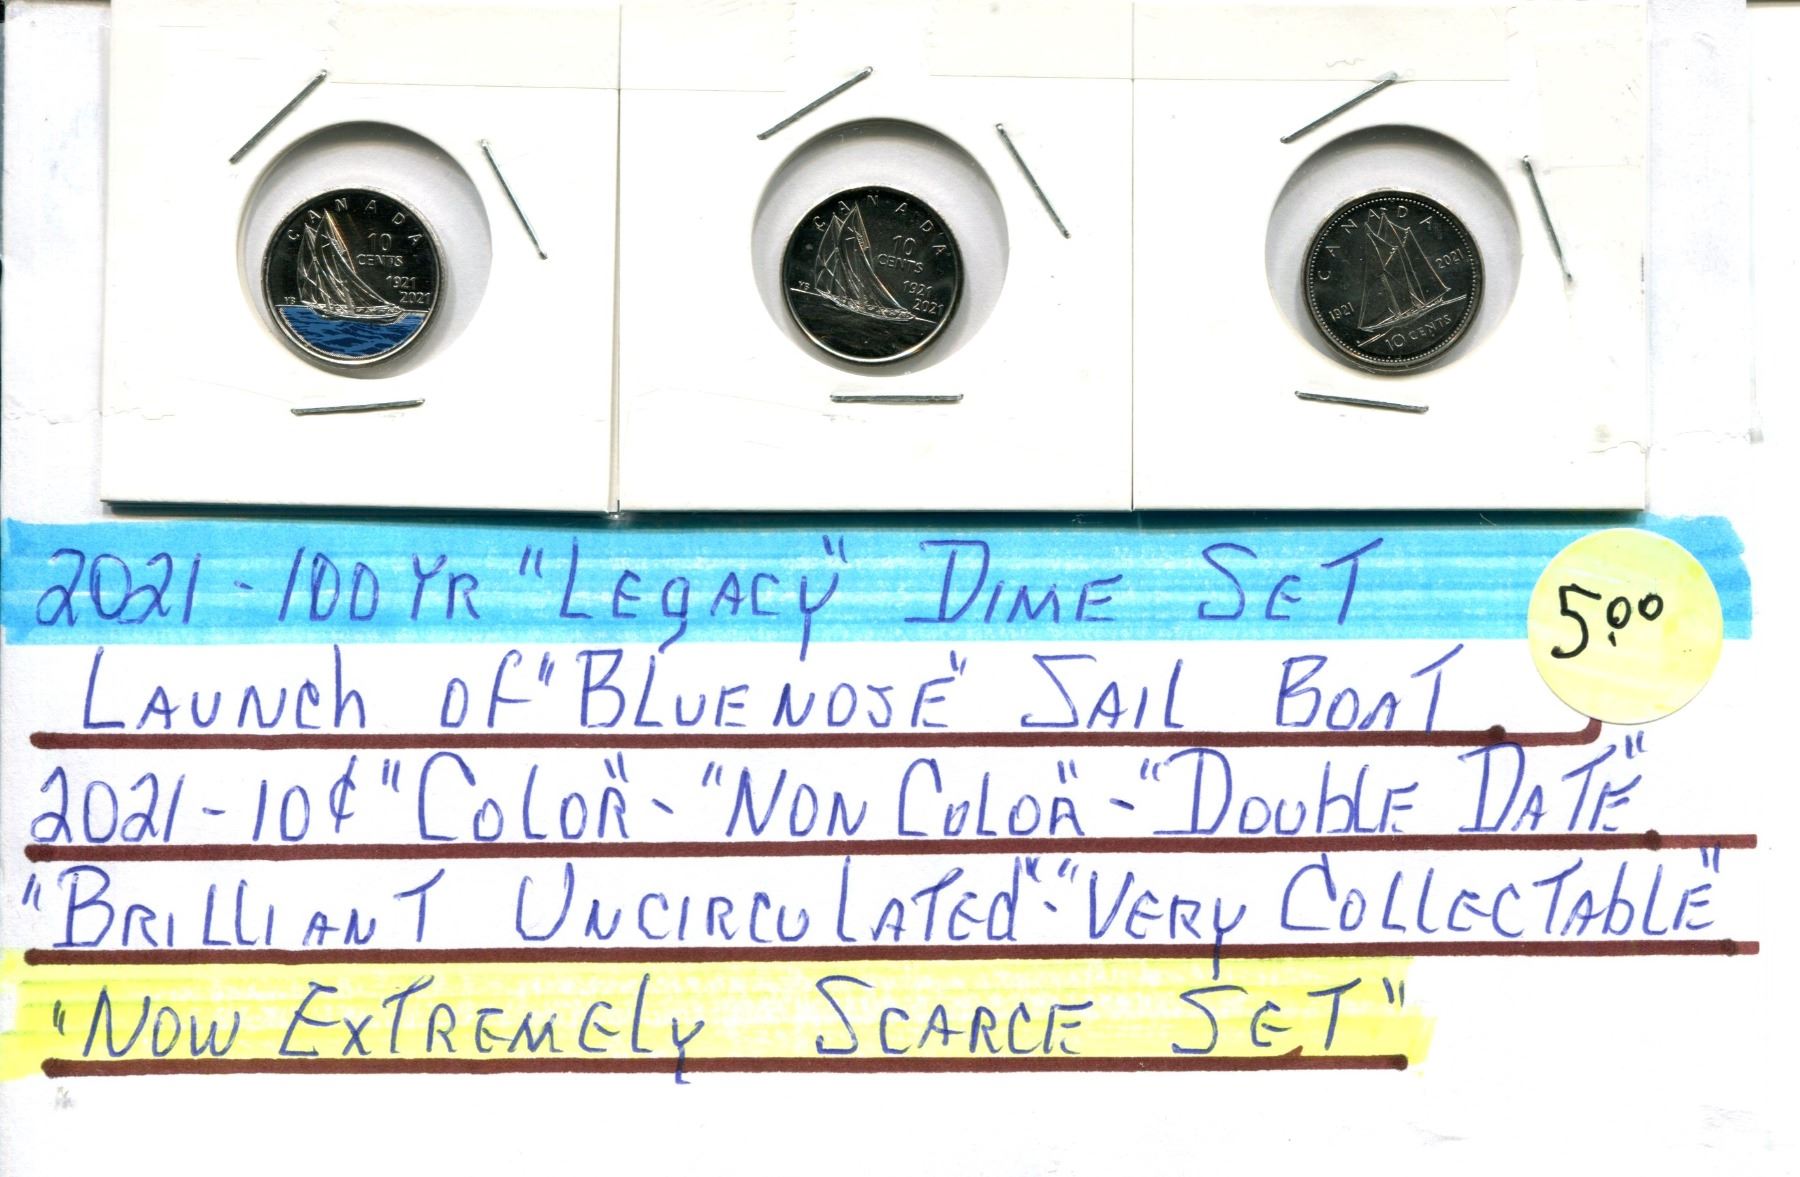 CANADA
10
CENTS
1921
2021
YB
CANADA
10
CENTS
1921
2021
YB
CANADA
1921
2021
10 CENTS
2021-100 YR "LEGACY" DIME SET
5.00
LAUNCH OF "BLUENOSE" SAIL BOAT
2021-10¢ "COLOR" - "NON COLOR" - "DOUBLE DATE"
"BRILLIANT UNCIRCULATED" - "VERY COLLECTABLE"
"NOW EXTREMELY SCARCE SET"